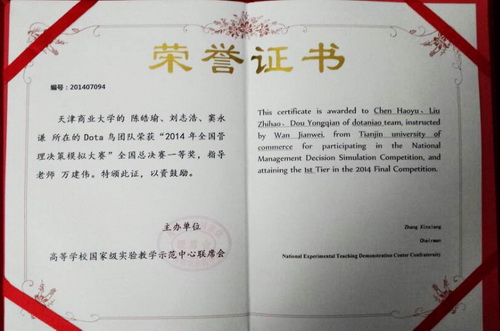 荣誉证书
编号：201407094
天津商业大学的 陈皓瑜、刘志浩、窦永
谦 所在的Dota 鸟团队荣获“2014 年全国管
理决策模拟大赛”全国总决赛一等奖，指导
老师 万建伟。特颁此证，以资鼓励。
主办单位
高等学校国家级实验教学示范中心联席会
This certificate is awarded to Chen Haoyu、Liu
Zhihao、Dou Yongqian of dotaniao team, instructed
by Wan Jianwei, from Tianjin university of
commerce for participating in the National
Management Decision Simulation Competition, and
attaining the 1st Tier in the 2014 Final Competition.
Zhang Xinxiang
Chairman
National Experimental Teaching Demonstration Center Confraternity